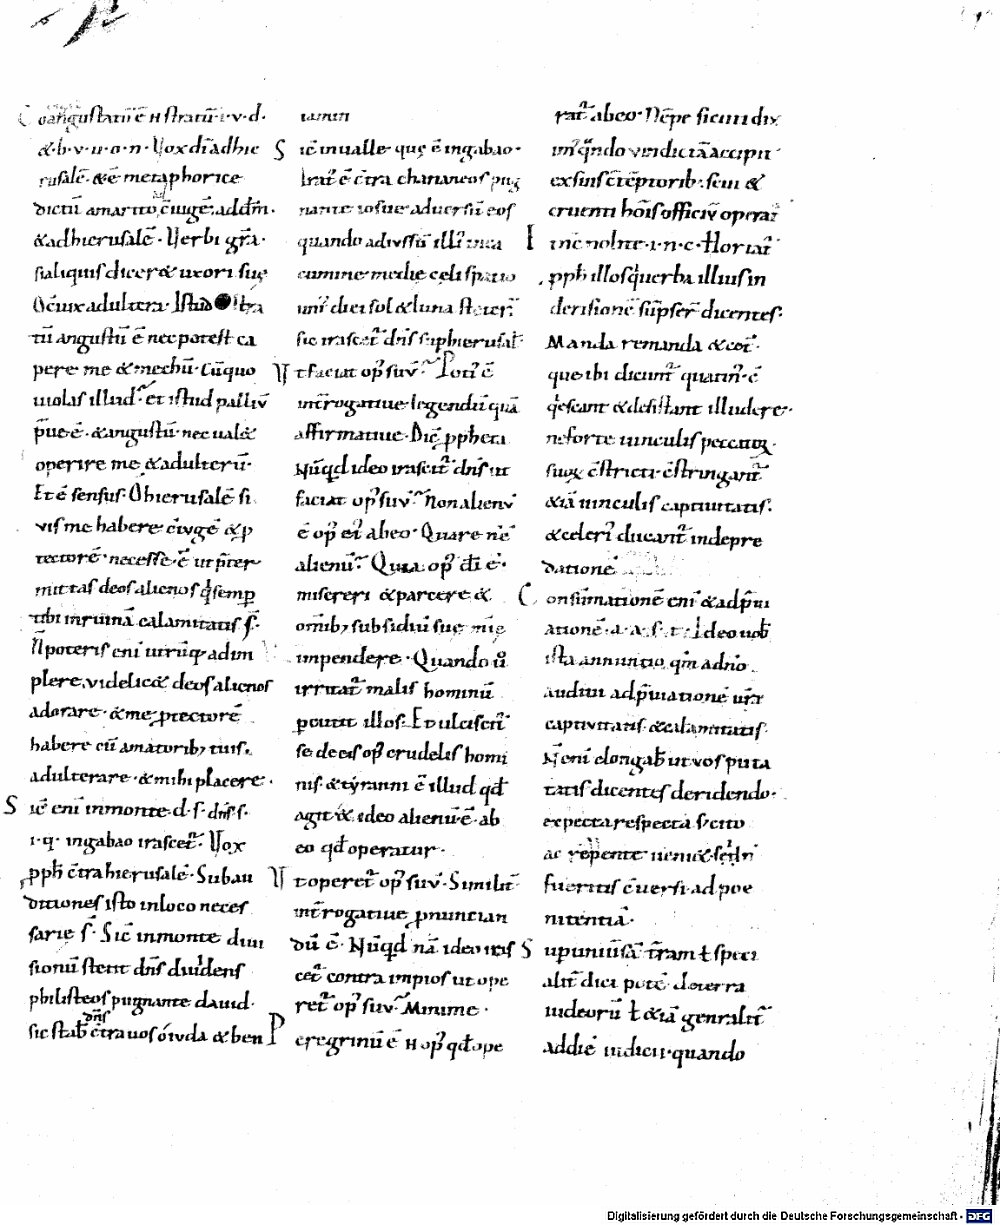 Coangustatū ē .n. stratū .i.v.d.
&.b.v.u.o.n. Vox dn̄i adhie
rusalē. & ē metaphorice
dictū amarito c̄iuge addm̄.
& adhierusalē. Verbi gr̄a.
sialiquis dicer& uxori suę
O c̄iux adultera. Istud stra
tū angustū ē nec potest ca
pere me & mechū. cū quo
uiolas illud. et istud palliū
p̄ue ē. & angustū nec ual&
operire me & adulterū.
Et ē sensus. O hierusalē si
vis me habere c̄iugē & p
rectorē. necesse ē ut p̄ter
mittas deos alienos q̇ semp
tibi inruinā calamitatis s̄.
N̄ poteris eni utrūq; adim
plere, videlic& deos alienos
adorare. & me protectorē
habere cū amatorib; tuis.
adulterare. & mihi placere.
Sic̄ eni inmonte .d.s. dn̄s .s.
.i.q. ingabao irascet̄. Vox
pph̄ c̄tra hierusalē. Subau
ditiones isto inloco neces
sarie s̄. Sic̄ inmonte diui
sionū stetit dn̄s diuidens
philisteos pugnante dauid.
sic stab̄ dn̄s c̄tra uos ó iuda & ben
iamin
Sic̄ inualle quę ē ingabao.
Irat̄ ē c̄tra chananeos pug
nante iosue aduersū eos
quando adiussū illi
cumine medie cęli spatio
uni diei sol & luna steter̄.
sic irascet̄ dn̄s sup hierusal̄.
Vt faciat op̄ suv̄. Poti ē
int̄rogatiue legendū quā
affirmatiue. Dic̄ ppheta
Nūqd ideo irascit̄ dn̄s ut
faciat op̄ suv̄. Non alienv̄
ē op̄ ei abeo. Quare n̄ ē
alienū. Quia op̄ dī ē.
misereri & parcere &
om̄ib; subsidiū suę
impendere. Quando ū
irritat̄ malis hominū
pcutit illos. Et ulciscit̄
se de eis op̄ crudelis homi
nis & tyranni ē illud qd̄
agit & ideo alienū ē ab
eo qd̄ operatur.
Vt operet̄ op̄ suv̄. Similit̄
int̄rogatiue pnuncian
dū ē. Nūqd̄ nā ideo iras
cet̄ contra impios ut ope
ret̄ op̄ suv̄. Minime.
Peregrinū ē .n. op̄ qd̄ ope
rat̄ abeo. Nēpe sicuti dix
im̄ q̄ndo vindictā accipit
exsuis c̄tēptorib; seui &
cruenti hōis officiv̄ operat̄
Et nc̄ nolite .i.n.c. Hortat̄
pph̄ illos q̇ uerba illius in
derisionē sup̄ser̄ dicentes.
Manda remanda & cet̄.
que ibi dicunt̄ quatin̄. c̄
q̇escant & desistant illudere.
ne forte uinculis peccatoꝝ
suoꝝ c̄stricti c̄stringant̄
& iā uinculis captiuitatis.
& celeri ducant̄ indepre
datione
Consūmationē eni & adp̄ui
ationē .a.a. Ideo uob̄
ista annuntio, qm̄ a dn̄o
audiui adp̄uiationē ur̄a
captivitatis & calamitatis.
N̄ eni elongab̄ ut vos puta
tatis dicentes deridendo.
expecta respecta s; cito
ac repente ueni&
fueritis c̄uersi ad poe
nitentiā.
Sup uniūsā t̄ram ł speci
alit̄ dici potē. deterra
iudeorū ł & iā genralit̄
addiē iudicii. quando
Digitalisierung gefördert durch die Deutsche Forschungsgemeinschaft - DFG